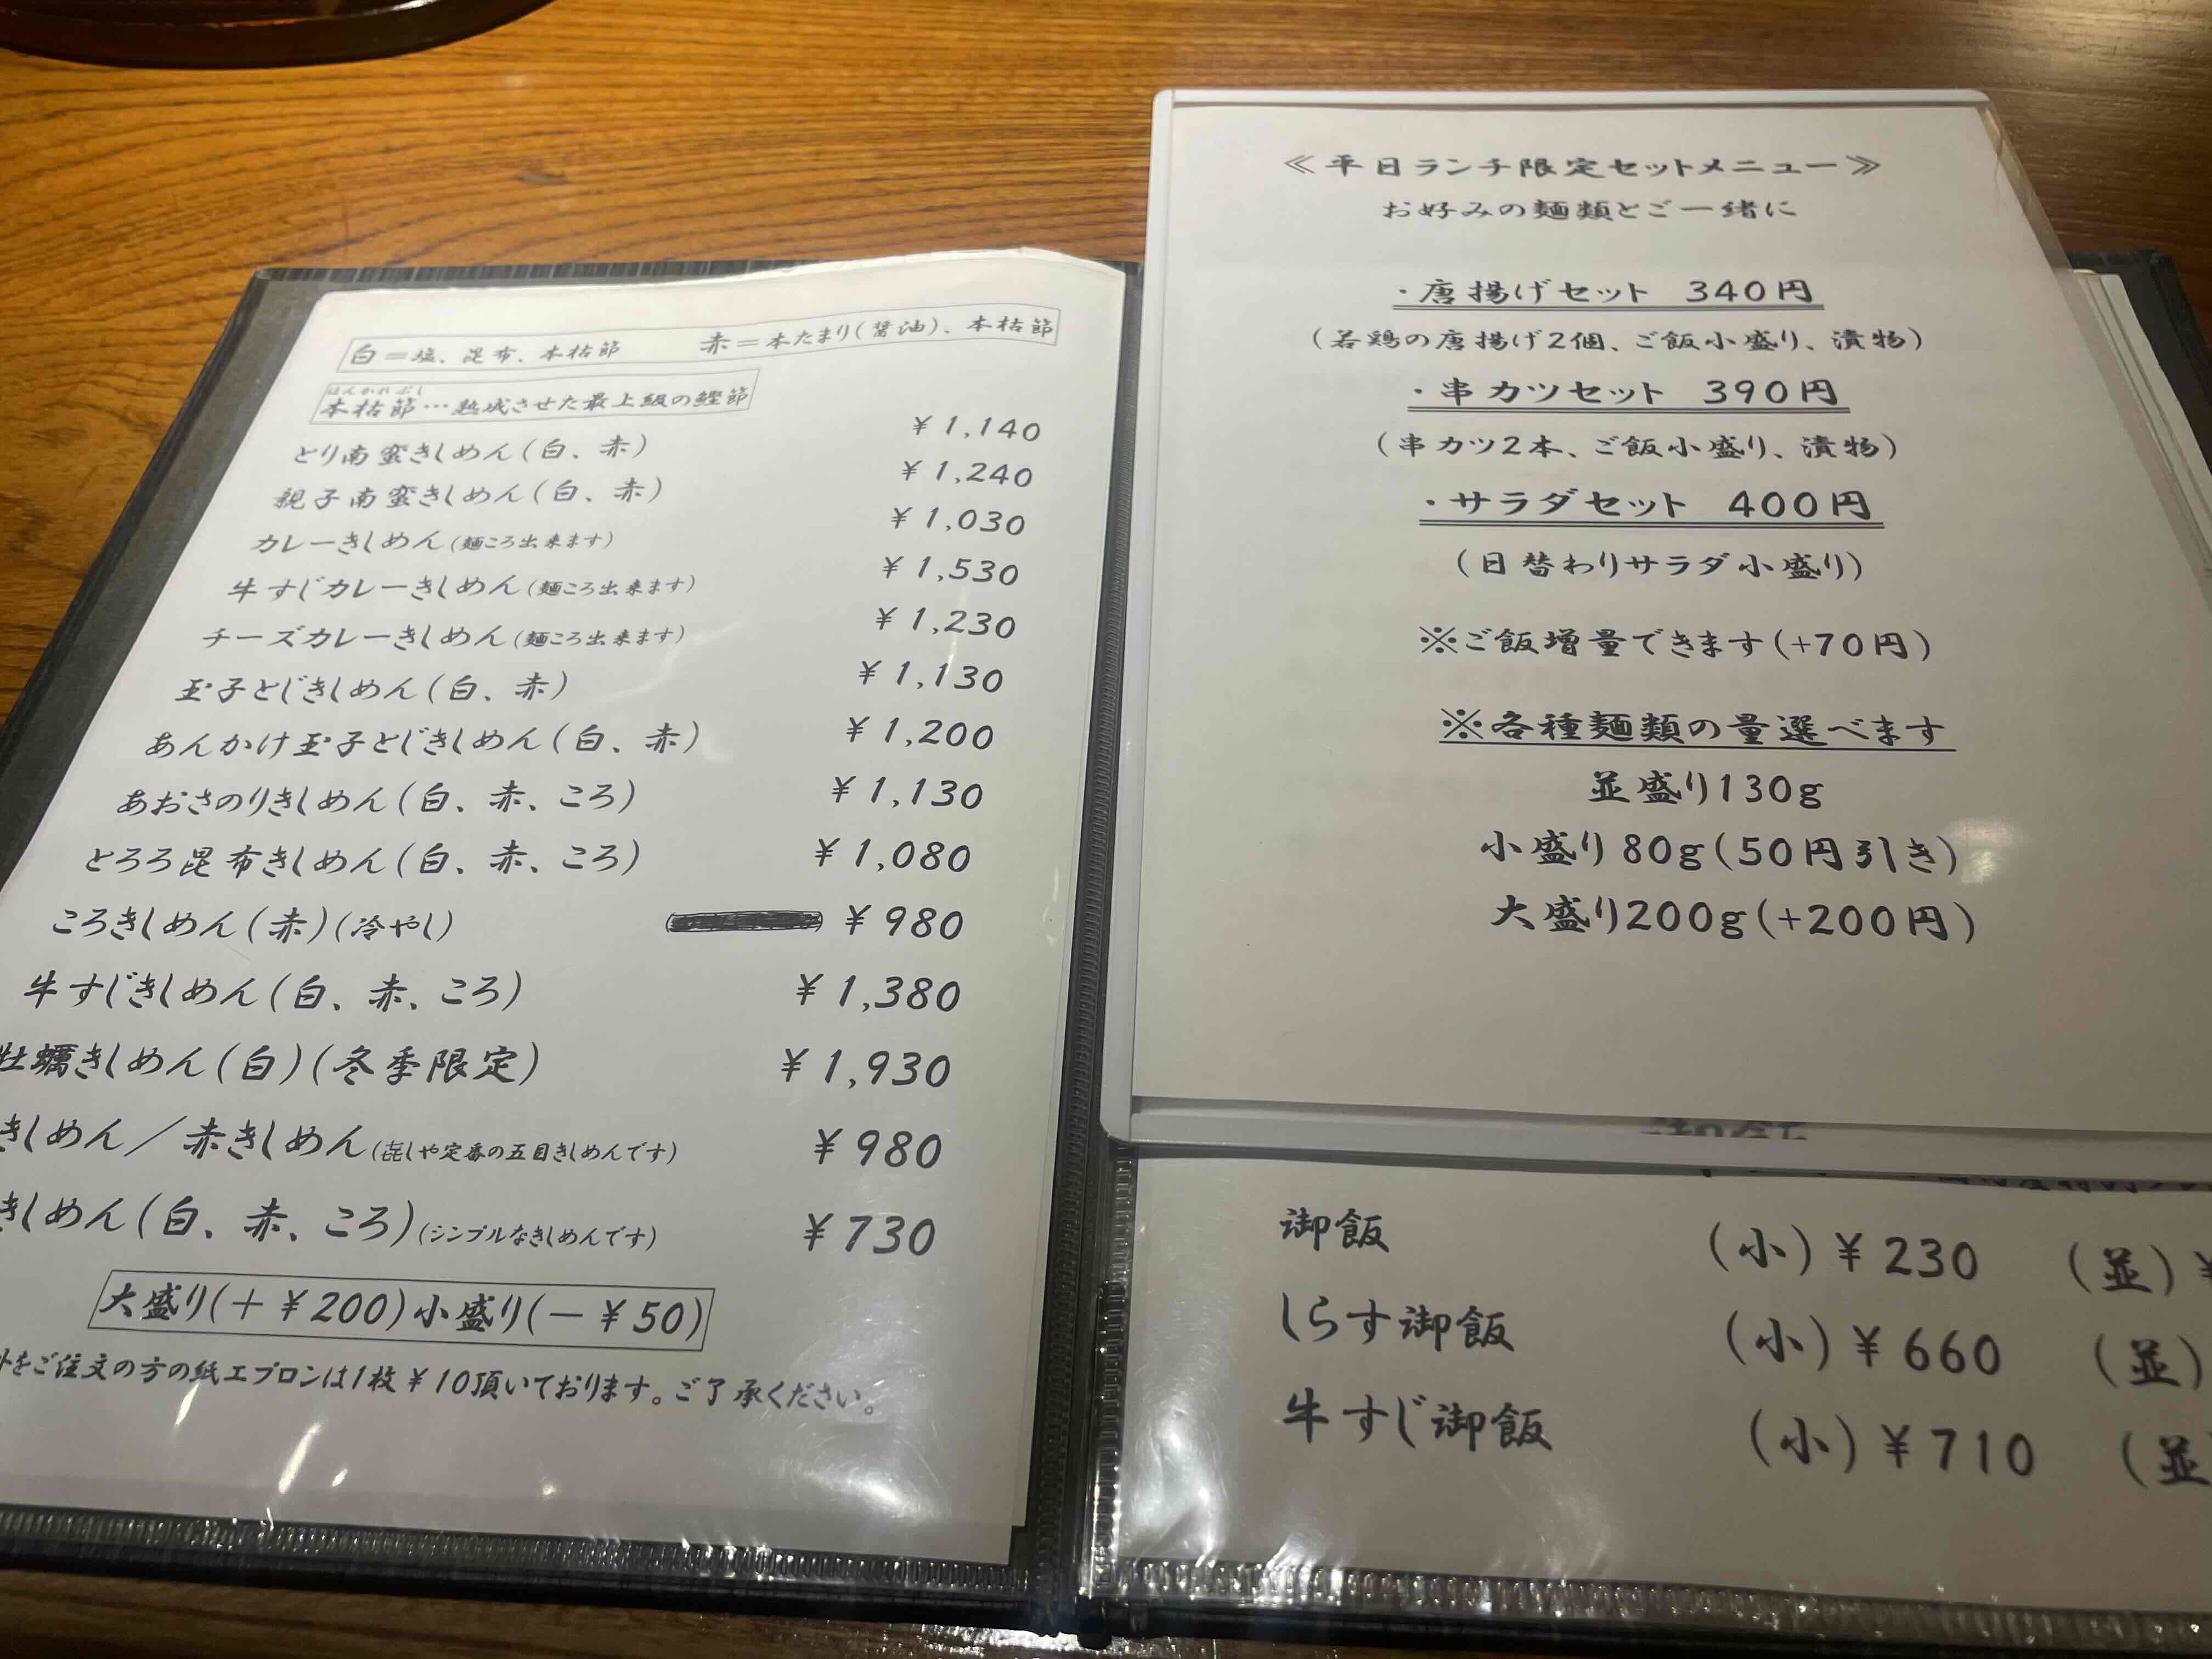 白=塩、昆布、本枯節 赤=本たまり(醤油)、本枯節
ほんかれぶし
本枯節…熟成させた最上級の鰹節
とり南蛮きしめん(白、赤) ¥1,140
親子南蛮きしめん(白、赤) ¥1,240
カレーきしめん(麺ころ出来ます) ¥1,030
牛すじカレーきしめん(麺ころ出来ます) ¥1,530
チーズカレーきしめん(麺ころ出来ます) ¥1,230
玉子とじきしめん(白、赤) ¥1,130
あんかけ玉子とじきしめん(白、赤) ¥1,200
あおさのりきしめん(白、赤、ころ) ¥1,130
とろろ昆布きしめん(白、赤、ころ) ¥1,080
ころきしめん(赤)(冷やし) ¥980
牛すじきしめん(白、赤、ころ) ¥1,380
牡蠣きしめん(白)(冬季限定) ¥1,930
きしめん/赤きしめん(㐂しや定番の五目きしめんです) ¥980
きしめん(白、赤、ころ)(シンプルなきしめんです) ¥730
大盛り(+¥200)小盛り(-¥50)
をご注文の方の紙エプロンは1枚¥10頂いております。ご了承ください。
≪平日ランチ限定セットメニュー≫
お好みの麺類とご一緒に
・唐揚げセット 340円
(若鶏の唐揚げ2個、ご飯小盛り、漬物)
・串カツセット 390円
(串カツ2本、ご飯小盛り、漬物)
・サラダセット 400円
(日替わりサラダ小盛り)
※ご飯増量できます(+70円)
※各種麺類の量選べます
並盛り130g
小盛り80g(50円引き)
大盛り200g(+200円)
御飯 (小)¥230 (並)¥
しらす御飯 (小)¥660 (並)
牛すじ御飯 (小)¥710 (並